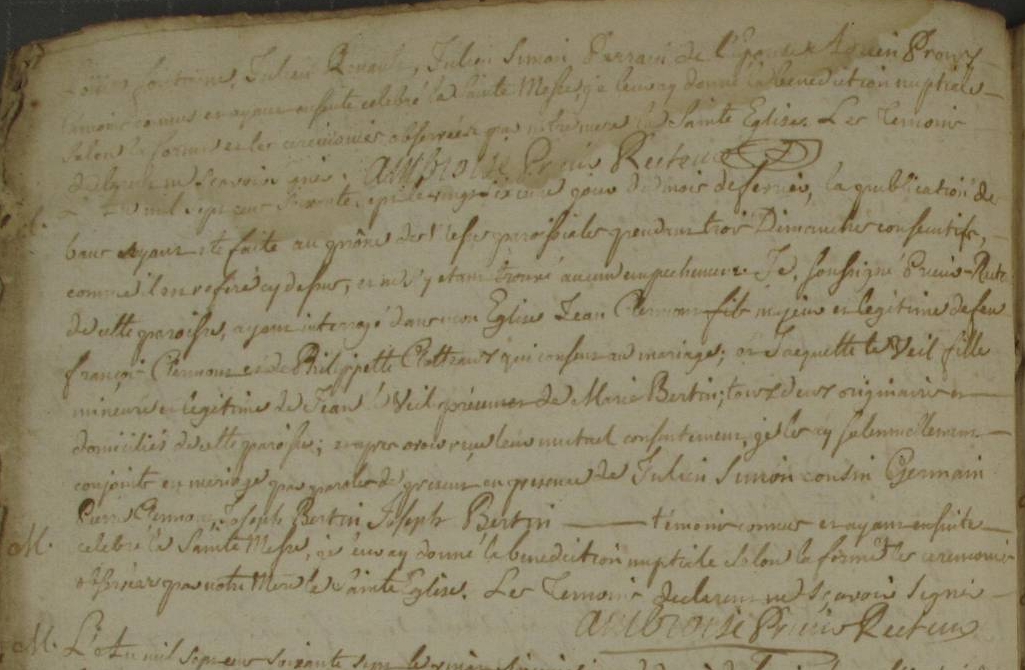 fontaine, Julien Renault, Julien Simon Parrain de l'Epouse
témoins connus et ayant ensuite celebré la Sainte Messe, je leur ay donné la benediction nuptiale
Selon la forme et les ceremonies observées par notre mere la Sainte Eglise. Les Temoins
declarent ne sçavoir signer. ambroise Prieur Recteur
L'an mil sept cent soixante sept le jour du mois de fevrier, la publication de
bans ayant eté faite au prône de Messes paroissiales pendant trois Dimanches consecutifs,
comme il en refere cy dessus, et ne s'y etant trouvé aucun empechement Je, soussigné Prieur-Rect
de cette paroisse, ayant interrogé dans mon Eglise Jean Clermont fils majeur et legitime de feu
françois Clermont et de Philippette qui consent au mariage; et Jaquette le Veil fille
mineure et legitime de Jean le Veil present et de Marie Bertin; tous deux originaires et
domiciliés de cette paroisse; et apres avoir reçu leur mutuel consentement, je les ay solennellement
conjoints en mariage par paroles de present en presence de Julien Simon cousin Germain
Pierre Clermont, Joseph Bertin Joseph Bertin témoins connus et ayant ensuite
M. celebré la Sainte Messe, je leur ay donné la benediction nuptiale selon la forme et les ceremonies
observées par notre Mere la Sainte Eglise. Les Temoins declarent ne Sçavoir Signer
ambroise Prieur Recteur
M. L'an mil sept cent soixante sept le